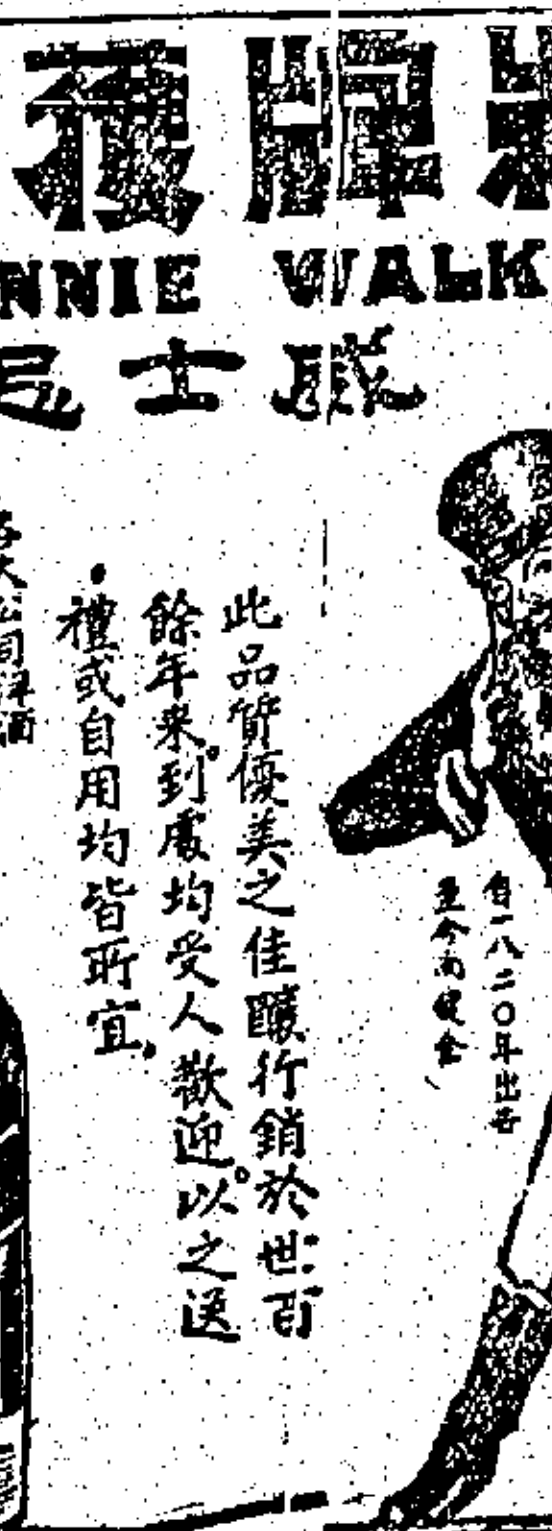 牌
NNIE WALK
威士忌
自一八二〇年出世
至今尚健全
此品質優美之佳釀行銷於世百
餘年來。到處均受人歡迎。以之送
禮或自用均皆所宜,
大公司洋酒